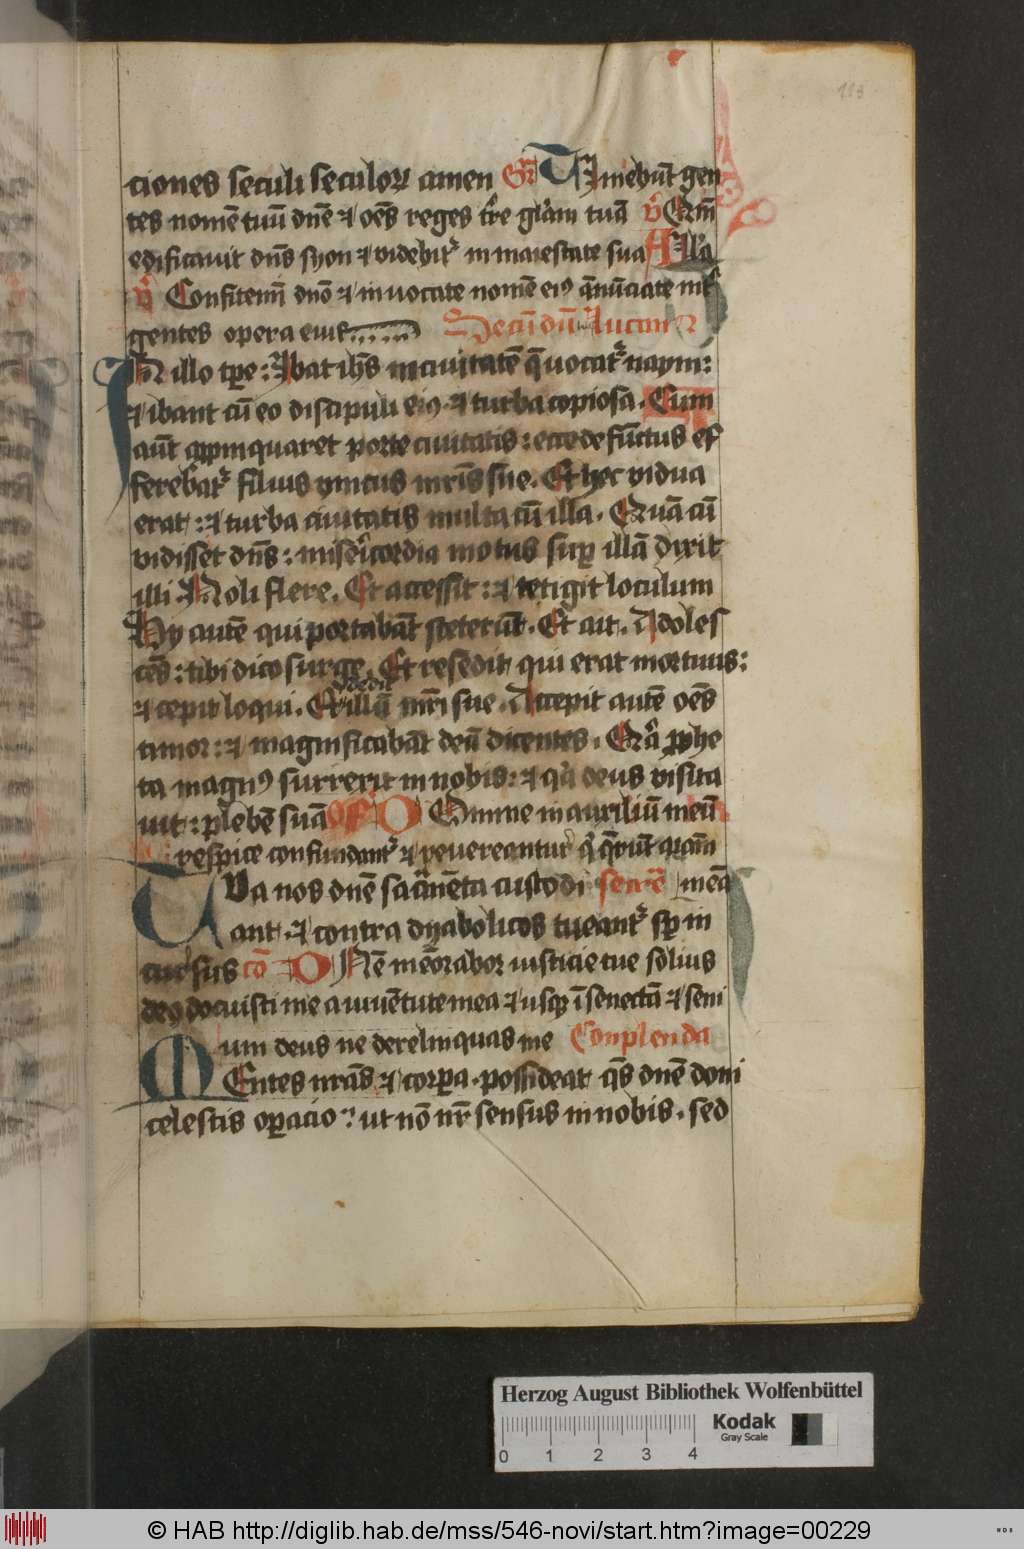 113
ciones seculi seculoꝝ amen Gr̄ Timebūt gen
tes nomē tuū dn̄e ⁊ oēs reges tr̄e glām tuā v̊ Qm̄
edificauit dn̄s syon ⁊ videbit᷑ in maiestate sua All'a
v̊ Confitemī dnō ⁊ inuocate nomē eiꝰ ānūciate int᷑
gentes opera eius Secūdū lucam
In illo tp̄e : Ibat ih̄s in ciuitatē q̄ vocat᷑ naym :
⁊ ibant cū eo discipuli eiꝰ . ⁊ turba copiosa . Cum
aūt appinquaret porte ciuitatis : ecce defūctus ef
ferebat᷑ filius vnicus mr̄is sue . Et hec vidua
erat : ⁊ turba ciuitatis multa cū illa . Quā cū
vidisset dn̄s : misericordia motus sup illā dixit
illi Noli flere . Et accessit : ⁊ tetigit loculum
Hy autē qui portabāt steterūt . Et ait . Adoles
cēs : tibi dico surge . Et resedit qui erat mortuus :
⁊ cepit loqui . Et dedit illū mr̄i sue . Accepit autē oēs
timor : ⁊ magnificabāt deū dicentes . Qr̄a ꝓphe
ta magnꝰ surrexit in nobis : ⁊ qͣ deus visita
uit : plebē suā Of Domine in auxiliū meū
respice confundant᷑ ⁊ reuereantur qͥ q̄rūt aīam
Tua nos dn̄e sacͣmēta custodi secrē meā
ant . ⁊ contra dyabolicos tueant᷑ sꝑ in
cursus cō Dn̄e memorabor iusticie tue solius
deꝰ docuisti me a iuuētute mea ⁊ usqꝫ ī senectā ⁊ seni
um deus ne derelinquas me Conplenda
Mentes nr̄as ⁊ corpa . possideat qͣs dn̄e doni
celestis opacio : ut nō nr̄ sensus in nobis . sed
Herzog August Bibliothek Wolfenbüttel
Kodak
Gray Scale
0 1 2 3 4
© HAB http://diglib.hab.de/mss/546-novi/start.htm?image=00229
HAB